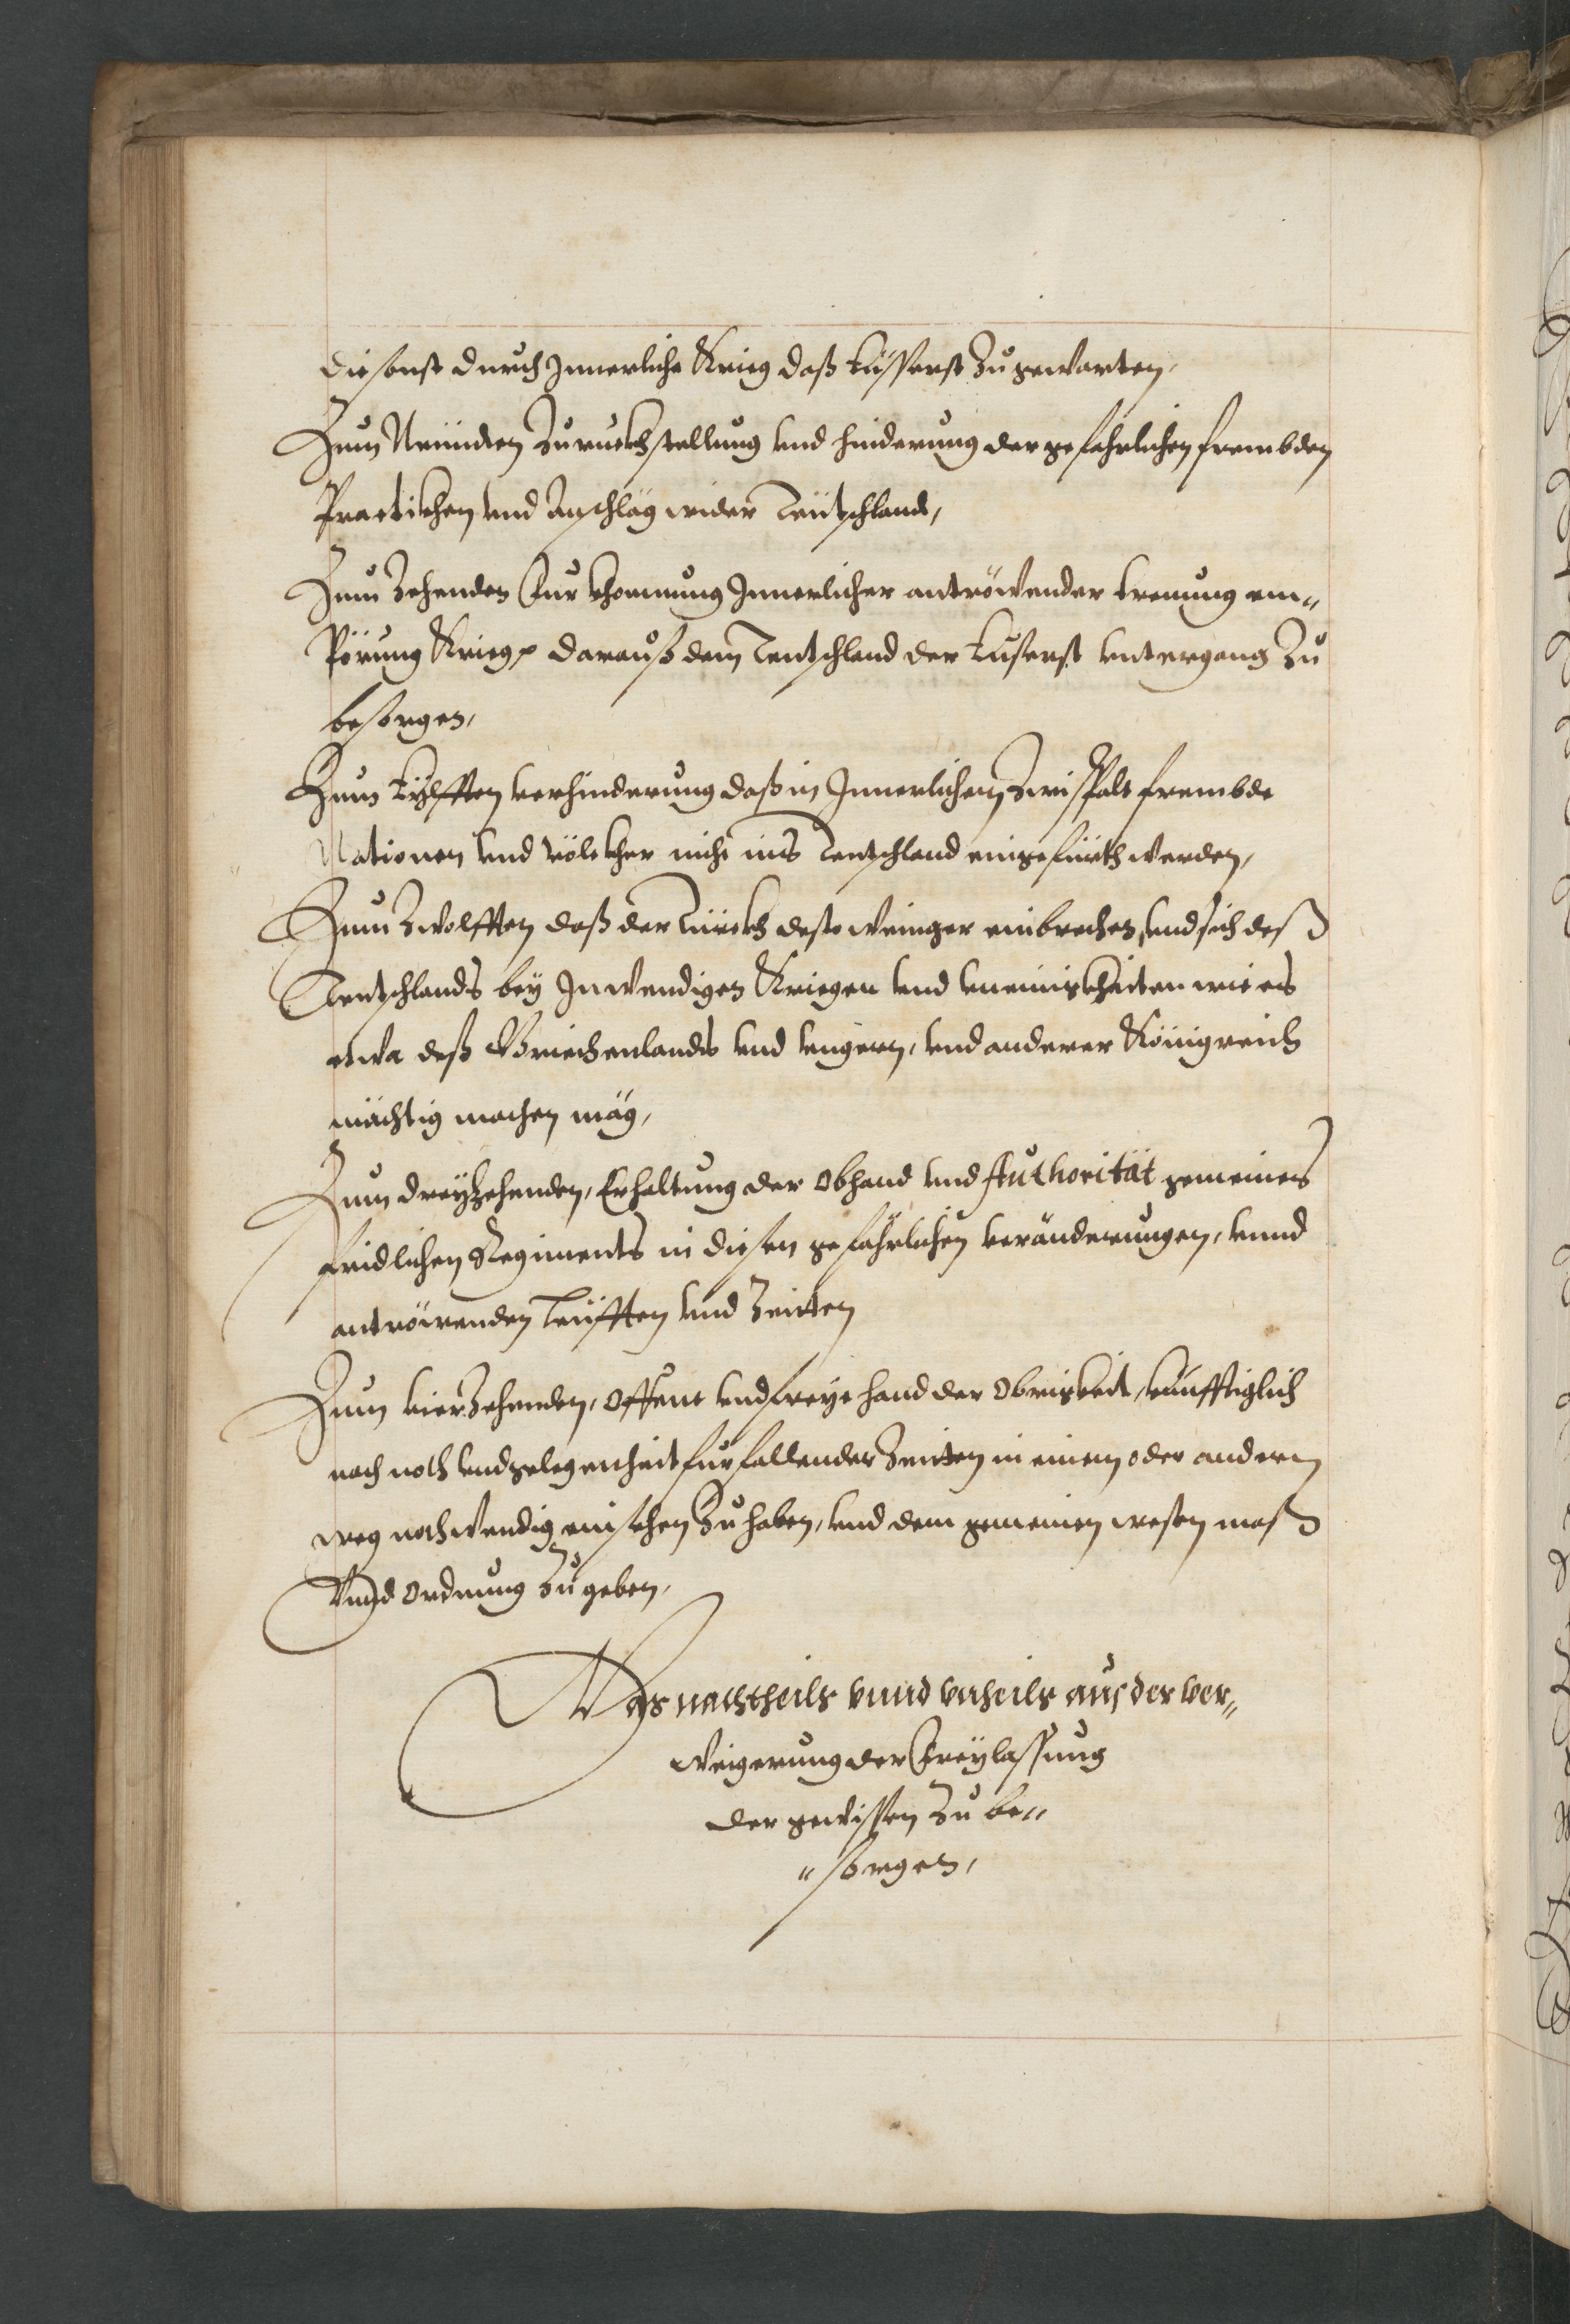 die sonst durch Innerliche Krieg daß eüsserst zugewarten,
Zum Neündten Zuruckhstellung vnd hinderung der gefehrlichen frembden
Practikhen vnd Anschläg wider Teütschland,
Zum Zehenden Fürkhommung Innerlicher antröwender trennung em„
Pörung Krieg darauß dem Teutschland der eüserst vntergang Zu
besorgen,
Zum Eylfften verhinderung daß in Innerlichem Zwispalt frembde
Nationen vnd völckher nicht ins Teutschland eingefürth werden,
Zum Zwolfften daß der Türckh desto weniger einbrechen, vnd sich deß
Teutschlands bey Inwendigen Kriegen vnd vneinigkheiten wie es
etwa deß Griechenlands vnd vngern, vnd anderer Königreich
mächtig machen mäg,
Zum dreyzehenden, Erhaltung der Obhand vnd Authorität gemeines
fridlichen Regiments in diesen gefährlichen veränderungen, vnnd
antröwenden leüfften vnd Zeitten
Zum vierzehenden, Offene vnd freye hand der Obrigkeit, künfftiglich
nach noth vnd gelegenheit fürfallender Zeitten in einem oder andern
weg nothwendig einsehen Zuhaben, vnd dem gemeinen wesen maß
Vnnd Ordnung Zugeben,
Was nachtheils vnnd vnheils aus der ver„
weigerung der Freylassung
der gewissen Zu be„
„sorgen,